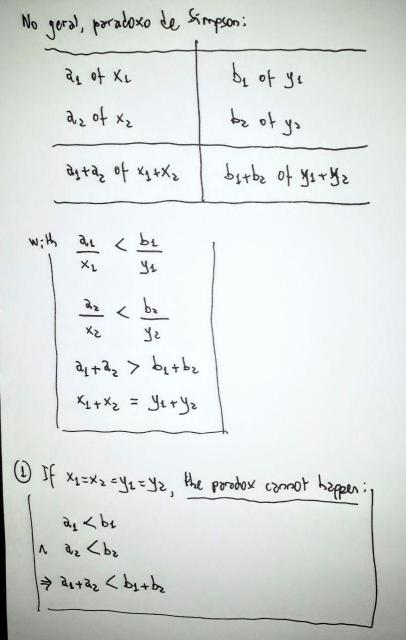 No geral, paradoxo de Simpson:
a₁ of x₁ b₁ of y₁
a₂ of x₂ b₂ of y₂
a₁+a₂ of x₁+x₂ b₁+b₂ of y₁+y₂
with a₁/x₁ < b₁/y₁
a₂/x₂ < b₂/y₂
a₁+a₂ > b₁+b₂
x₁+x₂ = y₁+y₂
① If x₁=x₂=y₁=y₂, the paradox cannot happen:
a₁ < b₁
∧ a₂ < b₂
⇒ a₁+a₂ < b₁+b₂